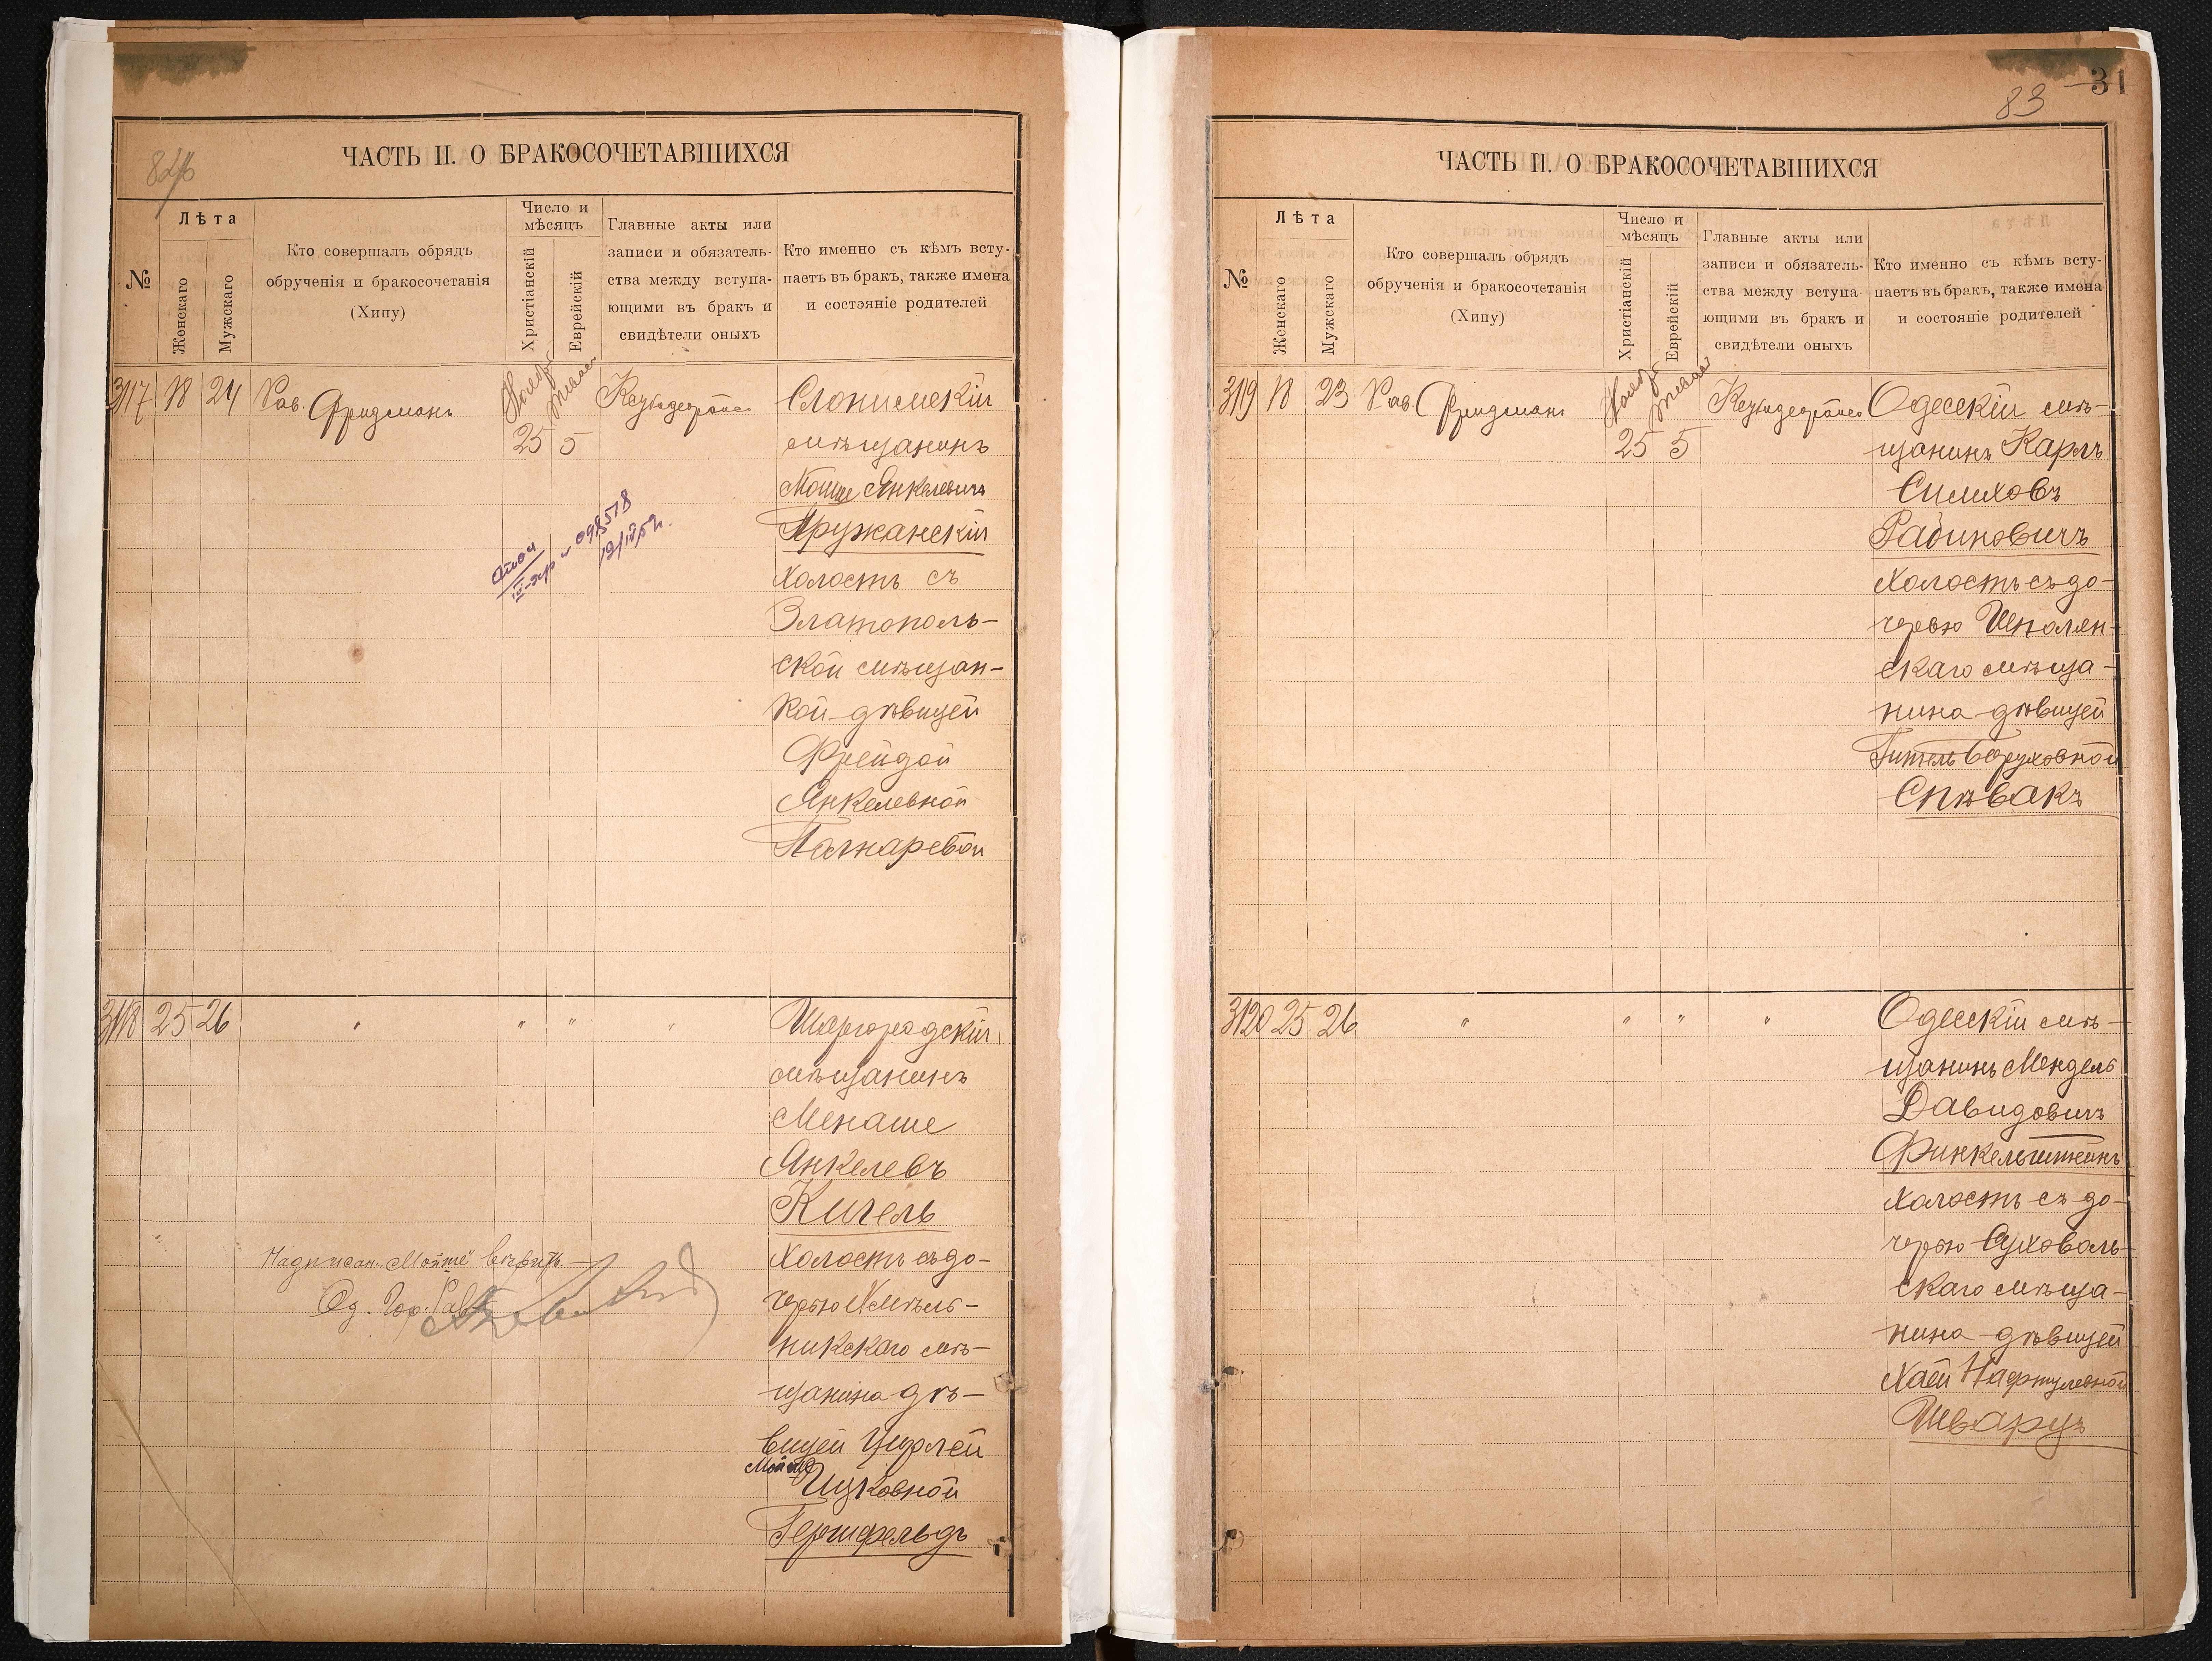 82
ЧАСТЬ II. О БРАКОСОЧЕТАВШИХСЯ
№
Лѣта
Женскаго
Мужскаго
Кто совершалъ обрядъ
обрученія и бракосочетанія
(Хипу)
Число и
мѣсяцъ
Христіанскій
Еврейскій
Главные акты или
записи и обязатель-
ства между вступа-
ющими въ бракъ и
свидѣтели оныхъ
Кто именно съ кѣмъ всту-
паетъ въ бракъ, также имена
и состояніе родителей
317 18 24 Рав. Фридманъ
25 5
Слонимскій
мѣщанинъ
Мошце Янкелевичъ
Пружанскій
холостъ съ
Златополь-
ской мѣщан-
кой-дѣвицей
Фрейдой
Янкелевной
098518
318 25 26 " " " "
Шаргородскій
мѣщанинъ
Менаше
Янкелевъ
Кигель
холостъ съ до-
черью Хмѣль-
никскаго мѣ-
щанина дѣ-
вицей Цирлей
Ицковной
Гершфельдъ
Од. Гор. Рав
83 31
ЧАСТЬ II. О БРАКОСОЧЕТАВШИХСЯ
№
Лѣта
Женскаго
Мужскаго
Кто совершалъ обрядъ
обрученія и бракосочетанія
(Хипу)
Число и
мѣсяцъ
Христіанскій
Еврейскій
Главные акты или
записи и обязатель-
ства между вступа-
ющими въ бракъ и
свидѣтели оныхъ
Кто именно съ кѣмъ всту-
паетъ въ бракъ, также имена
и состояніе родителей
319 18 23 Рав. Фридманъ
25 5
Одесскій мѣ-
щанинъ Карлъ
Симховъ
Рабиновичъ
холостъ съ до-
черью Шполян-
скаго мѣща-
нина-дѣвицей
Гитель Беруховной
Спѣвакъ
320 25 26 " " " "
Одесскій мѣ-
щанинъ Мендель
Давидовичъ
Финкельштейнъ
холостъ съ до-
черью Суховоль-
скаго мѣща-
нина-дѣвицей
Хаей Нафтулевной
Шварцъ